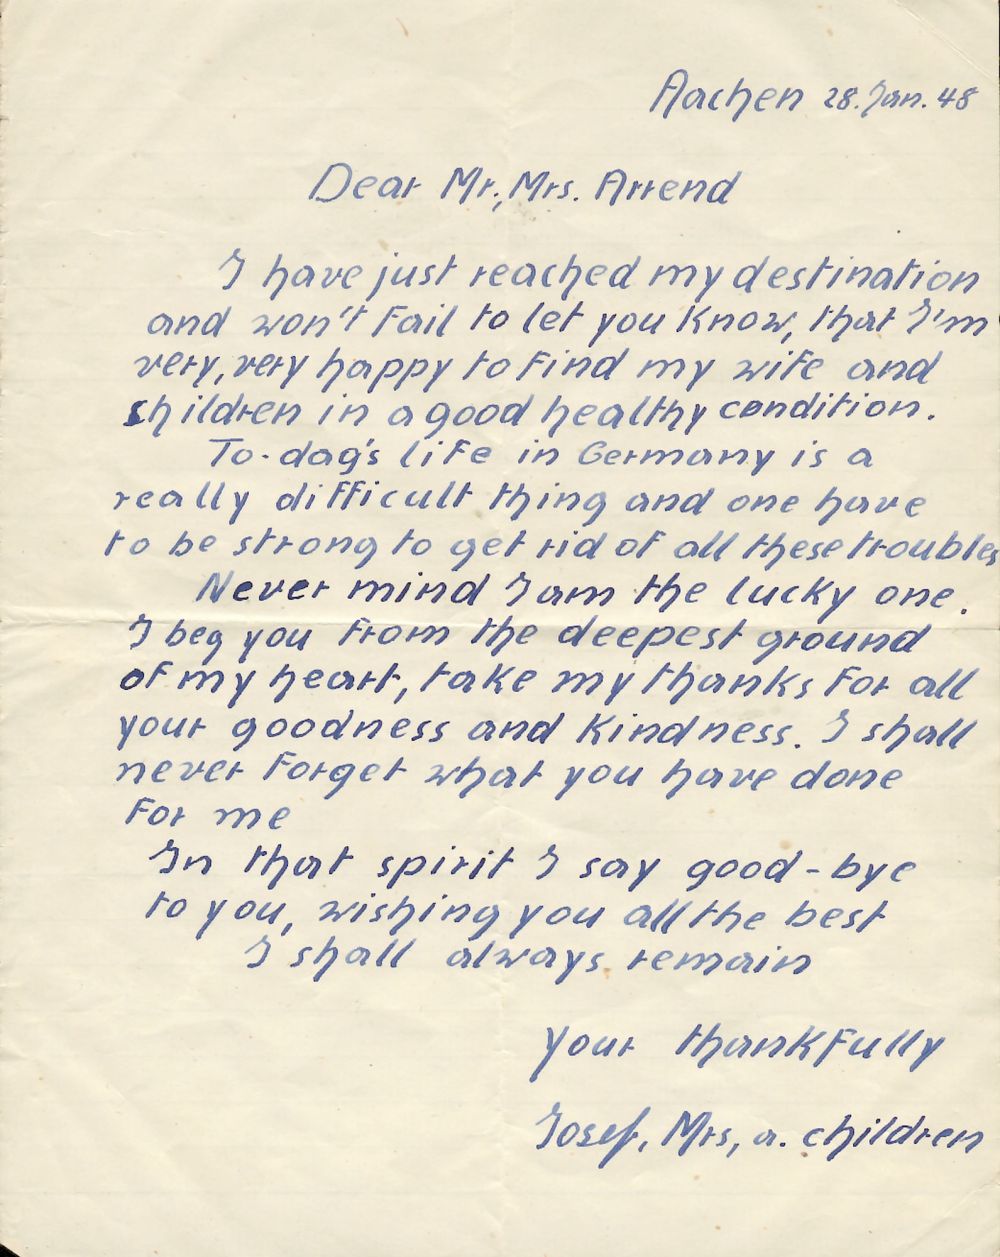 Aachen 28. Jan. 48
Dear Mr., Mrs. Arrend
I have just reached my destination
and won't fail to let you know, that I'm
very, very happy to find my wife and
children in a good healthy condition.
To-dag's life in Germany is a
really difficult thing and one have
to be strong to get rid of all these troubles
Never mind I am the lucky one.
I beg you from the deepest ground
of my heart, take my thanks for all
your goodness and kindness. I shall
never forget what you have done
for me
In that spirit I say good-bye
to you, wishing you all the best
I shall always remain
your thankfully
Josef, Mrs, a. children